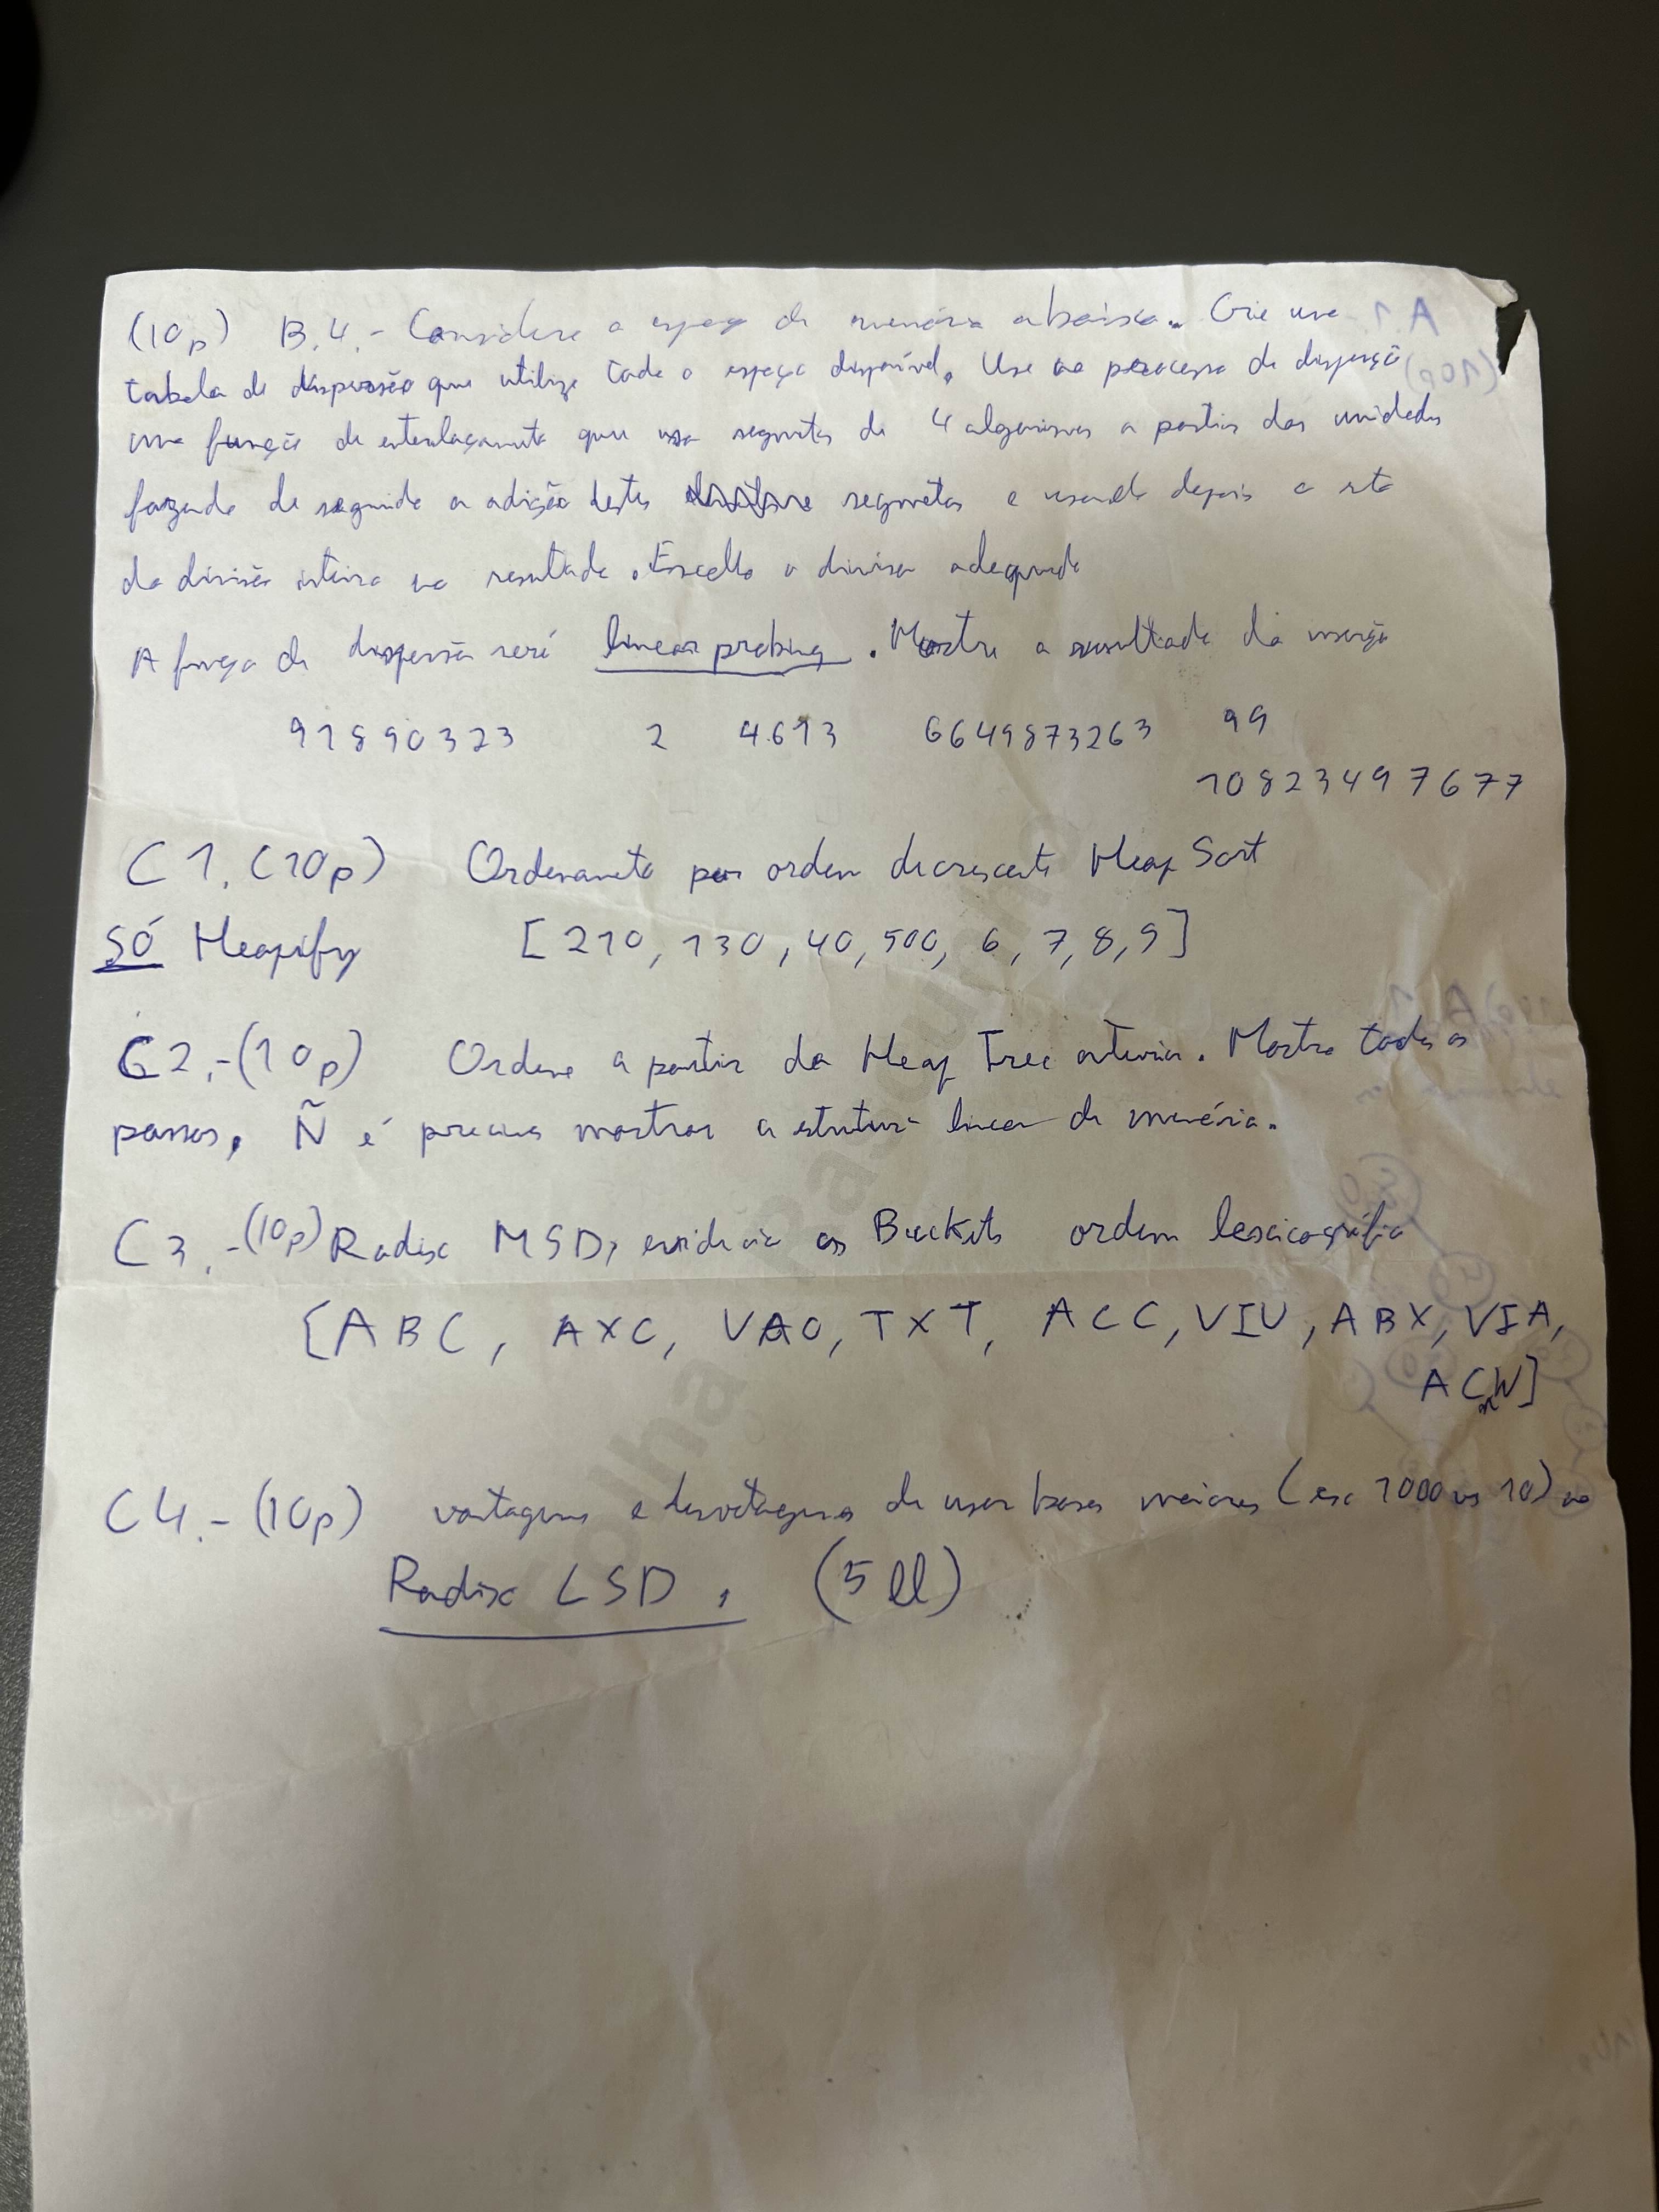 (10p) B.4.- Considere o espaço de memória abaixo. Crie uma
tabela de dispersão que utilize todo o espaço disponível. Use no processo de dispersão
uma função de entrelaçamento que usa segmentos de 4 algarismos a partir das unidades
fazendo de seguida a adição destes segmentos e usando depois o resto
da divisão inteira no resultado. Escolha o divisor adequado
A função de dispersão será linear probing. Mostre o resultado da inserção
91890323 2 4613 6649873263 99
10823497677
C1. (10p) Ordenamento por ordem decrescente Heap Sort
SÓ Heapify [210, 130, 40, 500, 6, 7, 8, 9]
C2.-(10p) Ordene a partir da Heap Tree anterior. Mostre todos os
passos. Ñ é preciso mostrar a estrutura linear de memória.
C3.-(10p) Radix MSD, evidencia os Buckets ordem lexicográfica
[ABC, AXC, VAO, TXT, ACC, VIU, ABX, VIA,
ACW]
C4.-(10p) vantagens e desvantagens de usar bases maiores (ex 1000 vs 10) no
Radix LSD. (5 ll)
Folha Rascunho